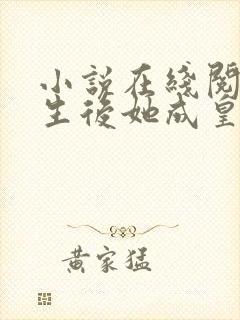 小说在綫閱
生後她成皇
黄家猛